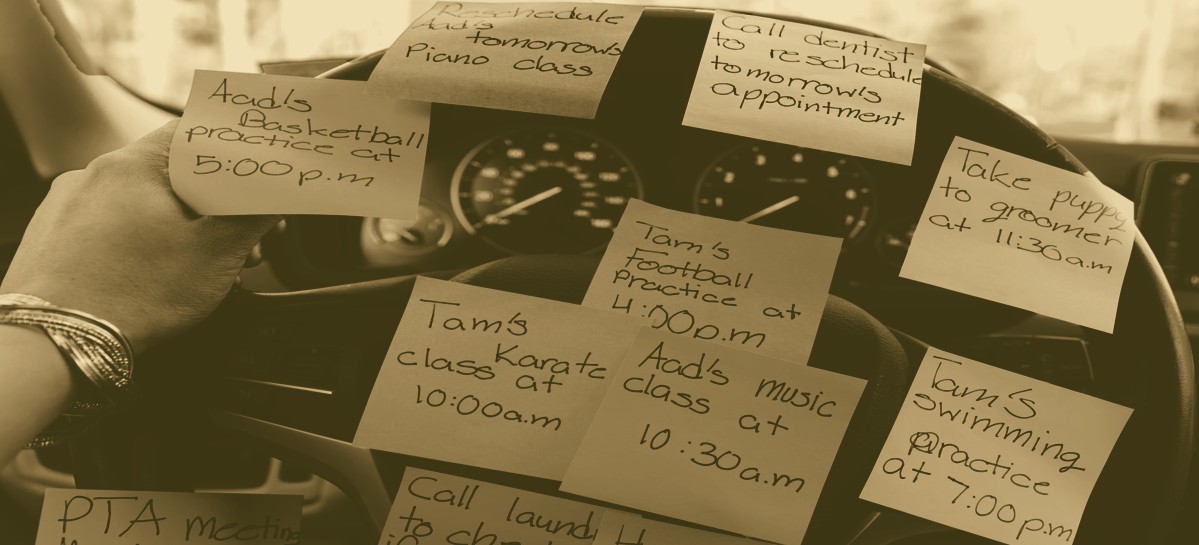 Reschedule
Aad's
tomorrow's
Piano class
Call dentist
to reschedule
tomorrow's
appointment
Aad's
Basketball
practice at
5:00p.m
Take puppy
to groomer
at 11:30a.m
Tam's
Football
practice at
4:00p.m
Tam's
Karate
class at
10:00a.m
Aad's music
class at
10:30a.m
Tam's
swimming
practice
at 7:00p.m
PTA Meeting
Call
to